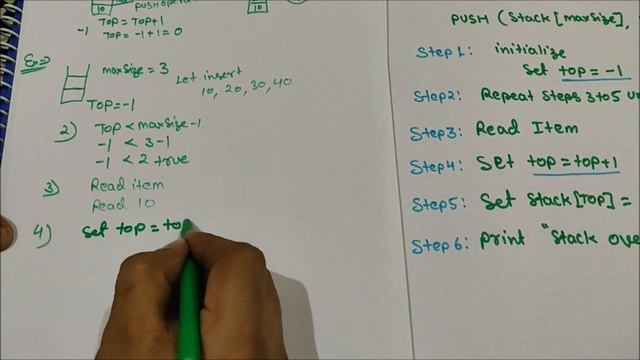 10
TOP = TOP+1
-1 TOP = -1+1=0
Ex=>
maxsize = 3
Let insert
10, 20, 30, 40
TOP=-1
2) TOP < maxsize-1
-1 < 3-1
-1 < 2 true
3) Read item
Read 10
4) Set top = to
PUSH (Stack[maxsize],
Step 1: initialize
Set top = -1
Step2: Repeat Steps 3 to 5 un
Step3: Read Item
Step4: Set top = top+1
Step5: Set Stack[TOP] =
Step6: print "Stack ove